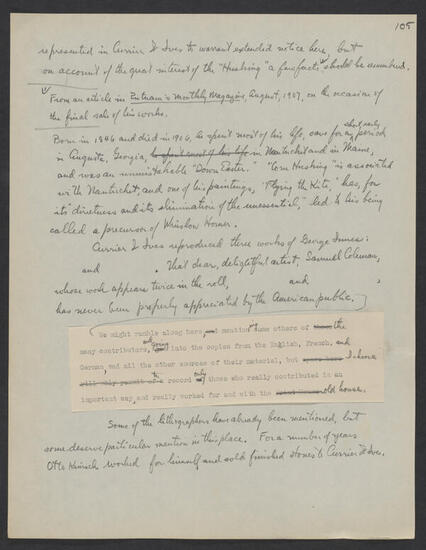 105
represented in Currier & Ives to warrant extended notice here, but
on account of the great interest of the "Husking" a few facts should be remembered.
From an article in Putnam's Monthly Magazine, August, 1907, on the occasion of
the final sale of his works.
Born in 1846 and died in 1906, he spent most of his life, save for an short early period
in Augusta, Georgia, he spent most of his life in Nantucket and in Maine,
and was an unmistakable "Down Easter." "Corn Husking" is associated
with Nantucket, and one of his paintings, "Flying the Kite," has, for
its directness and its elimination of the unessential," led to his being
called a precursor of Winslow Homer.
Currier & Ives reproduced three works of George Inness:
and . That dear, delightful artist, Samuel Colman,
whose work appears twice in the roll, and ,
has never been properly appreciated by the American public.
We might ramble along here, and mentioning some others of the
many contributors, and going into the copies from the English, French, and
German, and all the other sources of their material, but I choose
to record only those who really contributed in an
important way and really worked for and with the old house.
Some of the lithographers have already been mentioned, but
some deserve particular mention in this place. For a number of years
Otto Knirsch worked for himself and sold finished stones to Currier & Ives.